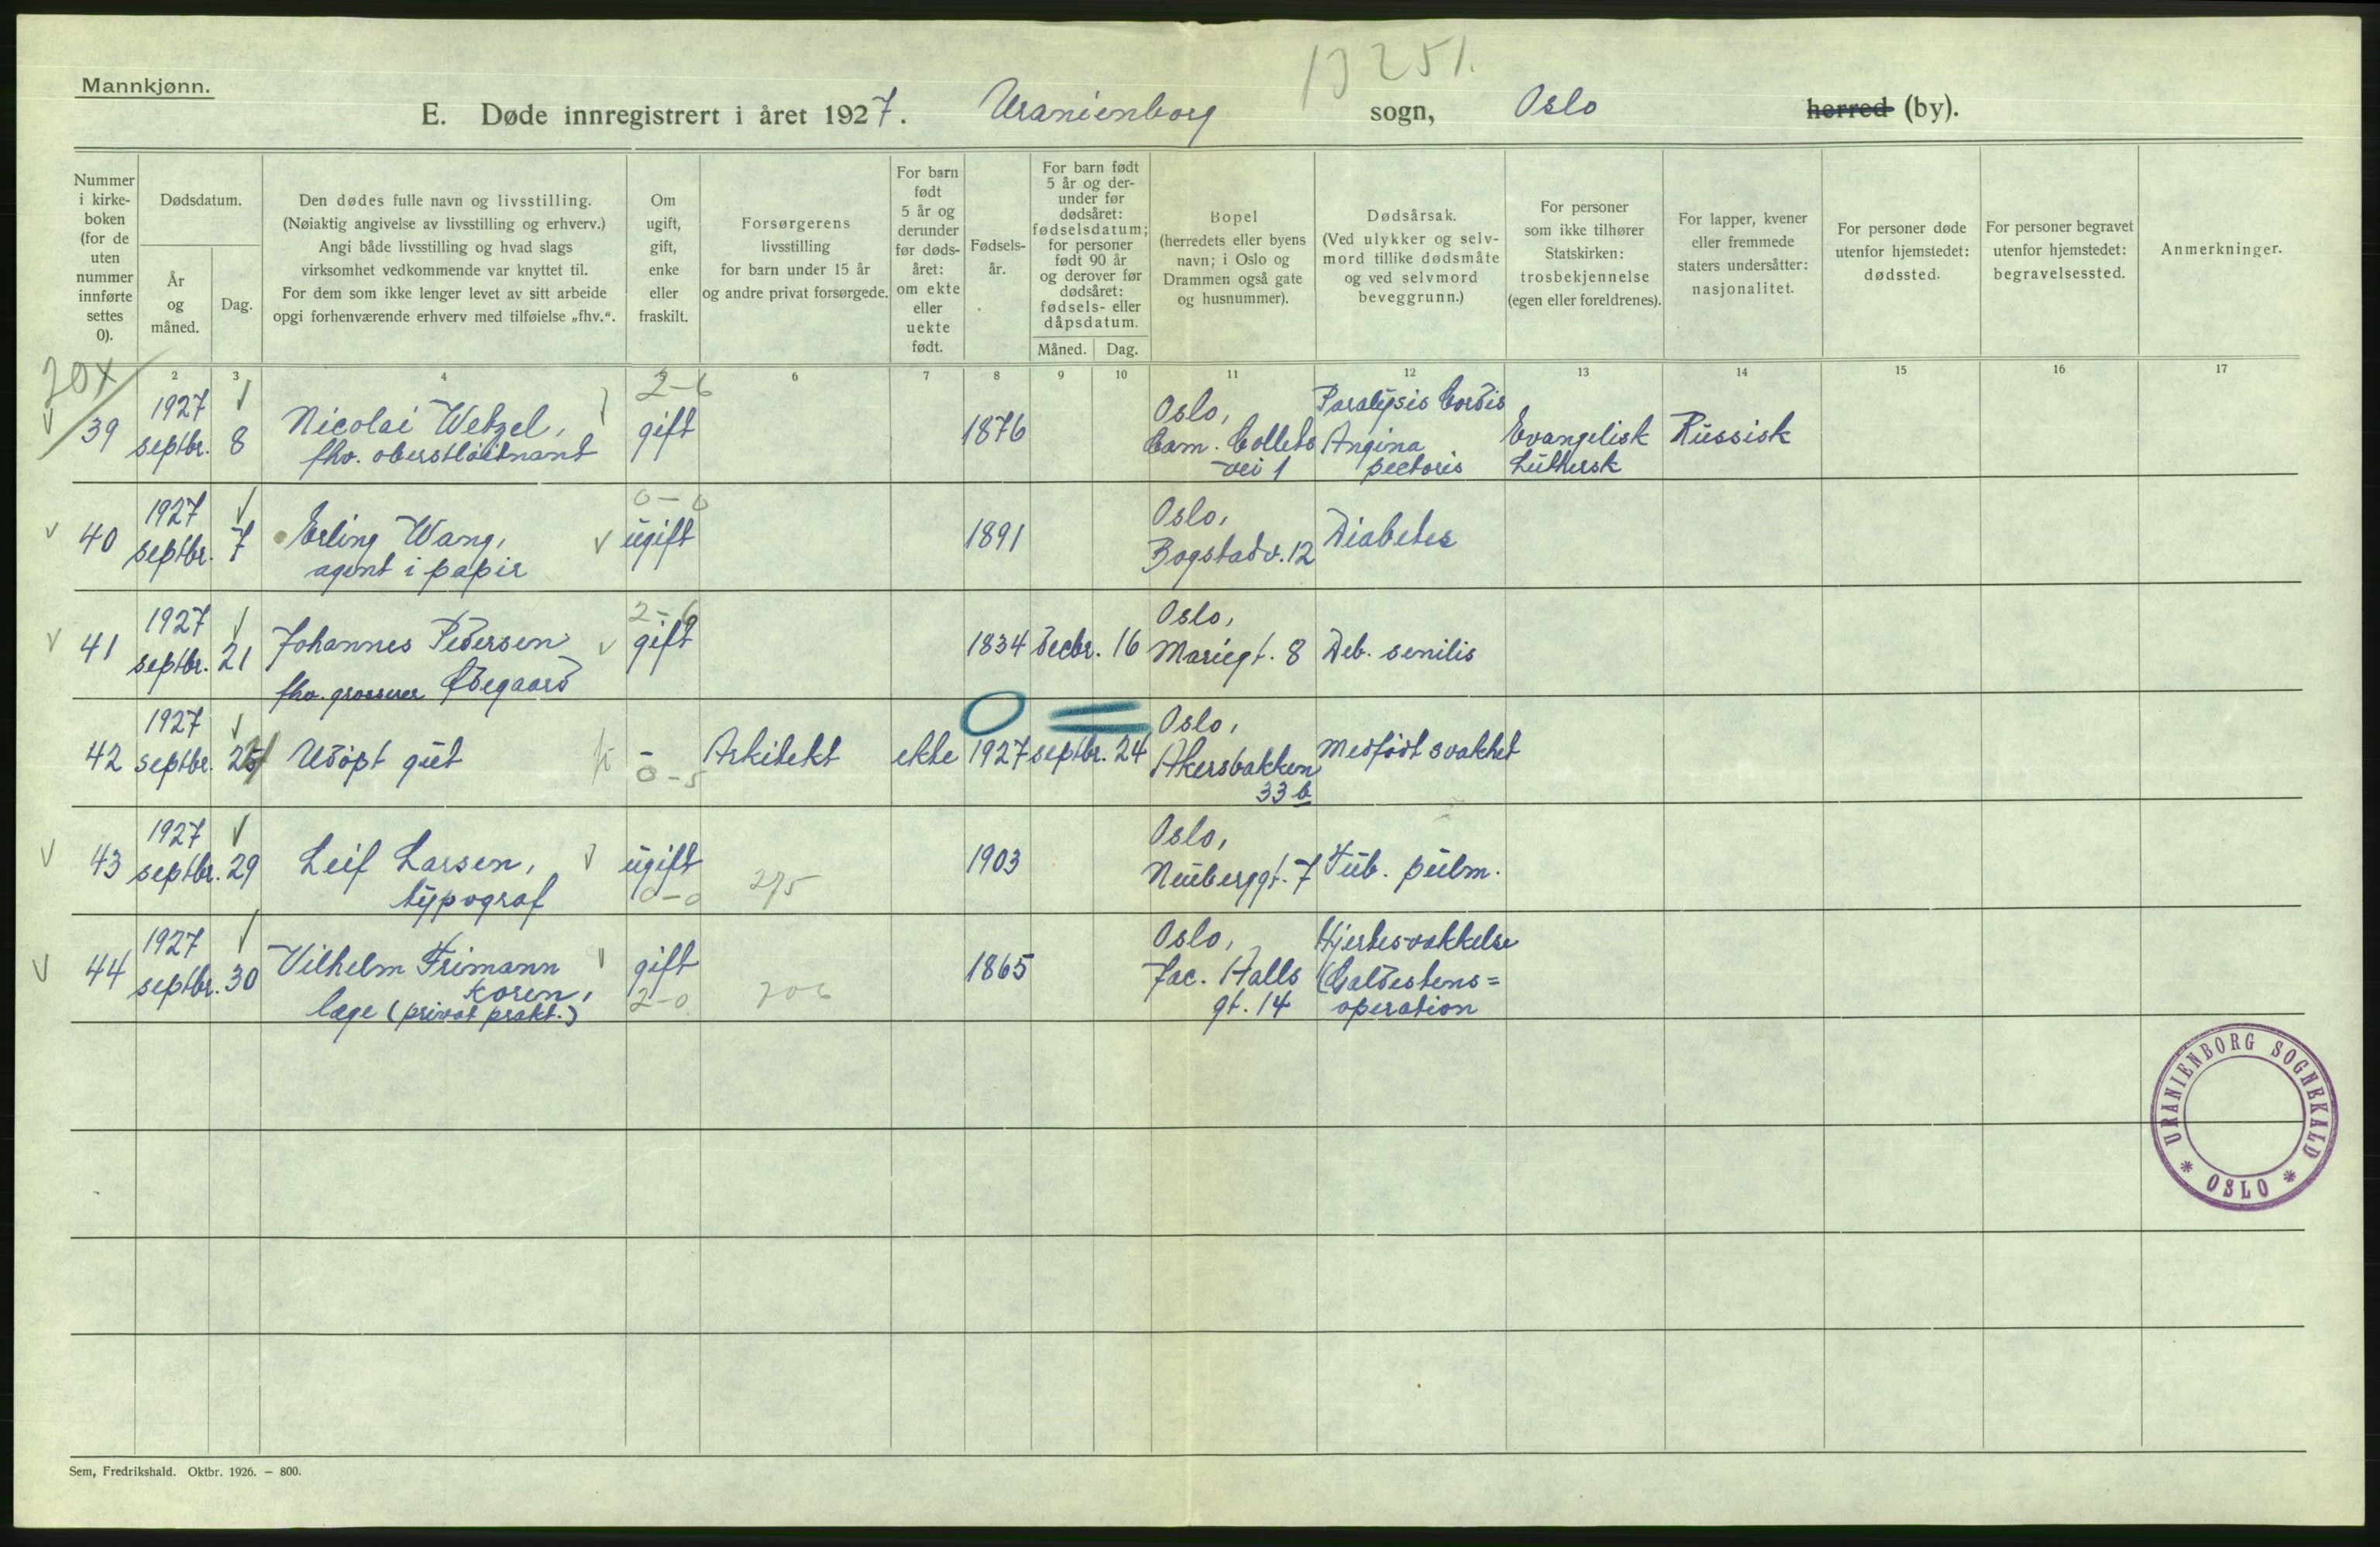 13251.
Mannkjønn.
E. Døde innregistrert i året 1927. Uranienborg sogn, Oslo herred (by).
Nummer i kirke-boken (for de uten nummer innførte settes 0).
Dødsdatum.
År og måned.
Dag.
Den dødes fulle navn og livsstilling.
(Nøiaktig angivelse av livsstilling og erhverv.)
Angi både livsstilling og hvad slags
virksomhet vedkommende var knyttet til.
For dem som ikke lenger levet av sitt arbeide
opgi forhenværende erhverv med tilføielse „fhv.“.
Om ugift, gift, enke eller fraskilt.
Forsørgerens
livsstilling
for barn under 15 år
og andre privat forsørgede.
For barn født 5 år og derunder før døds-året: om ekte eller uekte født.
Fødsels-år.
For barn født 5 år og der-under før dødsåret: fødselsdatum; for personer født 90 år og derover før dødsåret: fødsels- eller dåpsdatum.
Måned.
Dag.
Bopel
(herredets eller byens
navn; i Oslo og
Drammen også gate
og husnummer).
Dødsårsak.
(Ved ulykker og selv-
mord tillike dødsmåte
og ved selvmord
beveggrunn.)
For personer
som ikke tilhører
Statskirken:
trosbekjennelse
(egen eller foreldrenes).
For lapper, kvener
eller fremmede
staters undersåtter:
nasjonalitet.
For personer døde
utenfor hjemstedet:
dødssted.
For personer begravet
utenfor hjemstedet:
begravelsessted.
Anmerkninger.
2 3 4 6 7 8 9 10 11 12 13 14 15 16 17
20x
39 1927 septbr. 8 Nicolai Wetzel, fhv. oberstløitnant 2-6 gift 1876 Oslo, Cam. Colletts vei 1 Paralysis Cordis Angina pectoris Evangelisk Luthersk Russisk
40 1927 septbr. 7 Erling Wang, agent i papir 0-0 ugift 1891 Oslo, Bogstadv. 12 Diabetes
41 1927 septbr. 21 Johannes Pedersen Ødegaard fhv. grosserer 2-6 gift 1834 decbr. 16 Oslo, Mariegt. 8 Deb. senilis
42 1927 septbr. Udøpt gut - 0-5 Arkitekt ekte 1927 septbr. 24 Oslo, Akersbakken 33 b Medfødt svakhet
43 1927 septbr. 29 Leif Larsen, typograf ugift 0-0 275 1903 Oslo, Neuberggt. 7 Tub. pulm.
44 1927 septbr. 30 Vilhelm Frimann Koren, læge (privat prakt.) gift 2-0 206 1865 Oslo, Jac. Halls gt. 14 Hjertesvekkelse (Galdestens= operation
URANIENBORG SOGNEKALD
* OSLO *
Sem, Fredrikshald. Oktbr. 1926. — 800.